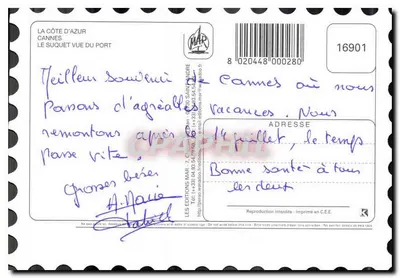 LA CÔTE D'AZUR
CANNES
LE SUQUET VUE DU PORT
MAR
8 020448 000280
16901
Meilleur souvenir de Cannes où nous
passons d'agréables vacances. Nous
remontons après le 14 juillet, le temps
passe vite.
Bonne santé à tous
les deux
Grosses bises
A. Marie
ADRESSE
LES EDITIONS MAR
Reproduction interdite - Imprimé en C.E.E.